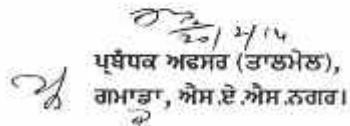 20/2/14
ਪ੍ਰਬੰਧਕ ਅਫਸਰ (ਤਾਲਮੇਲ),
ਗਮਾਡਾ, ਐਸ.ਏ.ਐਸ.ਨਗਰ।